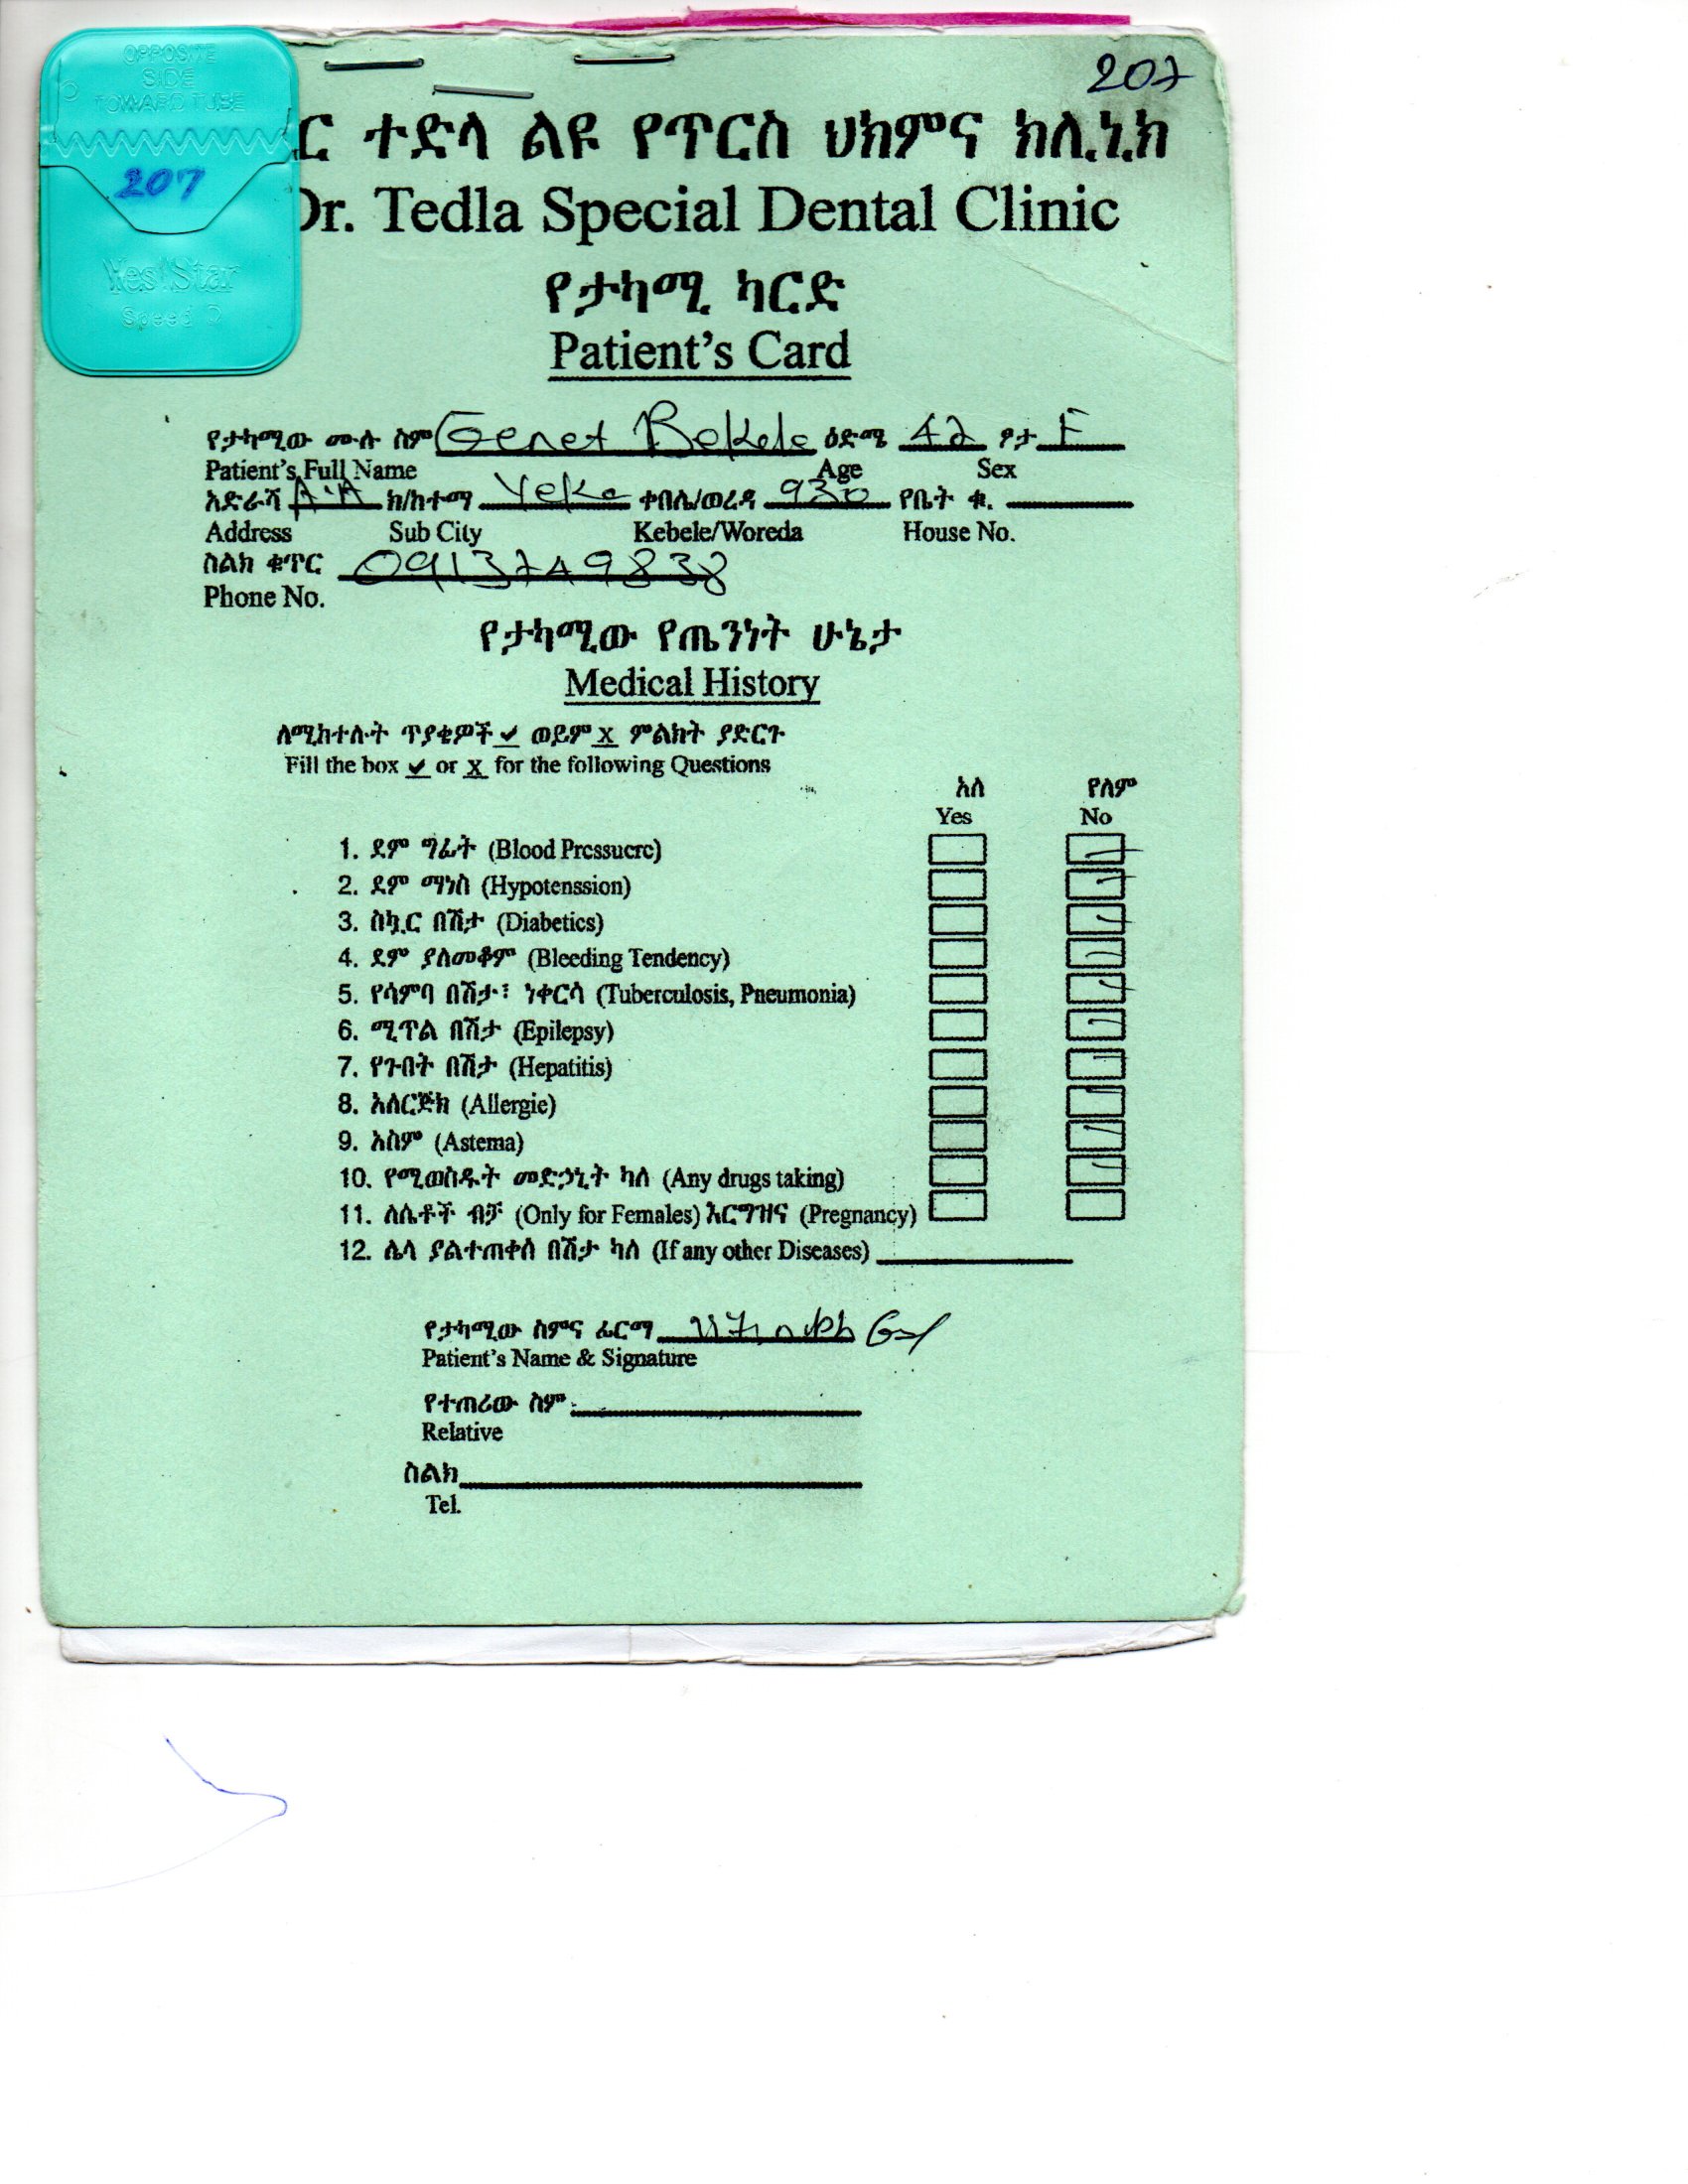 OPPOSITE
SIDE
TOWARD TUBE
207
WestStar
Speed D
207
ር ተድላ ልዩ የጥርስ ህክምና ክሊኒክ
Dr. Tedla Special Dental Clinic
የታካሚ ካርድ
Patient's Card
የታካሚው ሙሉ ስም Genet Bekele ዕድሜ 42 ፆታ F
Patient's Full Name Age Sex
አድራሻ A.A ክ/ከተማ Yeka ቀበሌ/ወረዳ 930 የቤት ቁ.
Address Sub City Kebele/Woreda House No.
ስልክ ቁጥር 0913749838
Phone No.
የታካሚው የጤንነት ሁኔታ
Medical History
ለሚከተሉት ጥያቄዎች ✓ ወይም X ምልክት ያድርጉ
Fill the box ✓ or X for the following Questions
አለ የለም
Yes No
1. ደም ግፊት (Blood Pressuere)
2. ደም ማነስ (Hypotenssion)
3. ስኳር በሽታ (Diabetics)
4. ደም ያለመቆም (Bleeding Tendency)
5. የሳምባ በሽታ፣ ነቀርሳ (Tuberculosis, Pneumonia)
6. ሚጥል በሽታ (Epilepsy)
7. የጉበት በሽታ (Hepatitis)
8. አለርጅክ (Allergie)
9. አስም (Astema)
10. የሚወስዱት መድኃኒት ካለ (Any drugs taking)
11. ለሴቶች ብቻ (Only for Females) እርግዝና (Pregnancy)
12. ሌላ ያልተጠቀሰ በሽታ ካለ (If any other Diseases)
የታካሚው ስምና ፊርማ
Patient's Name & Signature
የተጠሪው ስም
Relative
ስልክ
Tel.